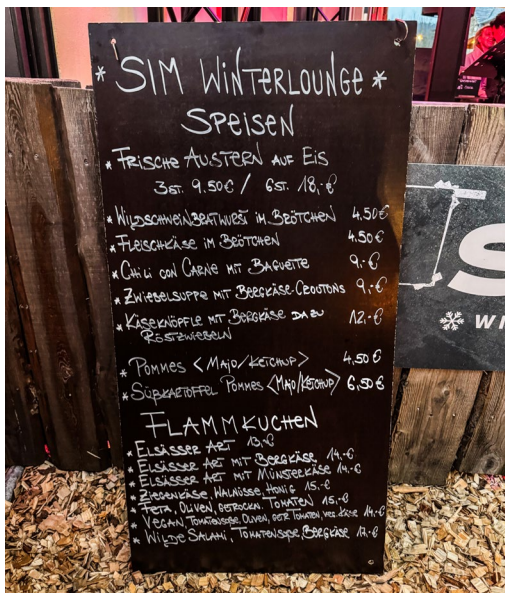 * SIM WINTERLOUNGE *
SPEISEN
* FRISCHE AUSTERN AUF EIS
3 ST. 9.50€ / 6 ST. 18,-€
* WILDSCHWEINBRATWURST IM BRÖTCHEN 4.50€
* FLEISCHKÄSE IM BRÖTCHEN 4.50€
* CHILI CON CARNE MIT BAGUETTE 9,-€
* ZWIEBELSUPPE MIT BERGKÄSE-CROUTONS 9,-€
* KÄSEKNÖPFLE MIT BERGKÄSE DAZU RÖSTZWIEBELN 12.-€
* POMMES <MAJO/KETCHUP> 4,50€
* SÜßKARTOFFEL POMMES <MAJO/KETCHUP> 6,50€
FLAMMKUCHEN
* ELSÄSSER ART 13,-€
* ELSÄSSER ART MIT BERGKÄSE 14,-€
* ELSÄSSER ART MIT MÜNSTERKÄSE 14-€
* ZIEGENKÄSE, WALNÜSSE, HONIG 15.-€
* FETA, OLIVEN, GETROCKN. TOMATEN 15,-€
* VEGAN, TOMATENSOßE, OLIVEN, GETR. TOMATEN, VEG. KÄSE 14.-€
* WILDE SALAMI, TOMATENSOßE, BERGKÄSE
S
WI